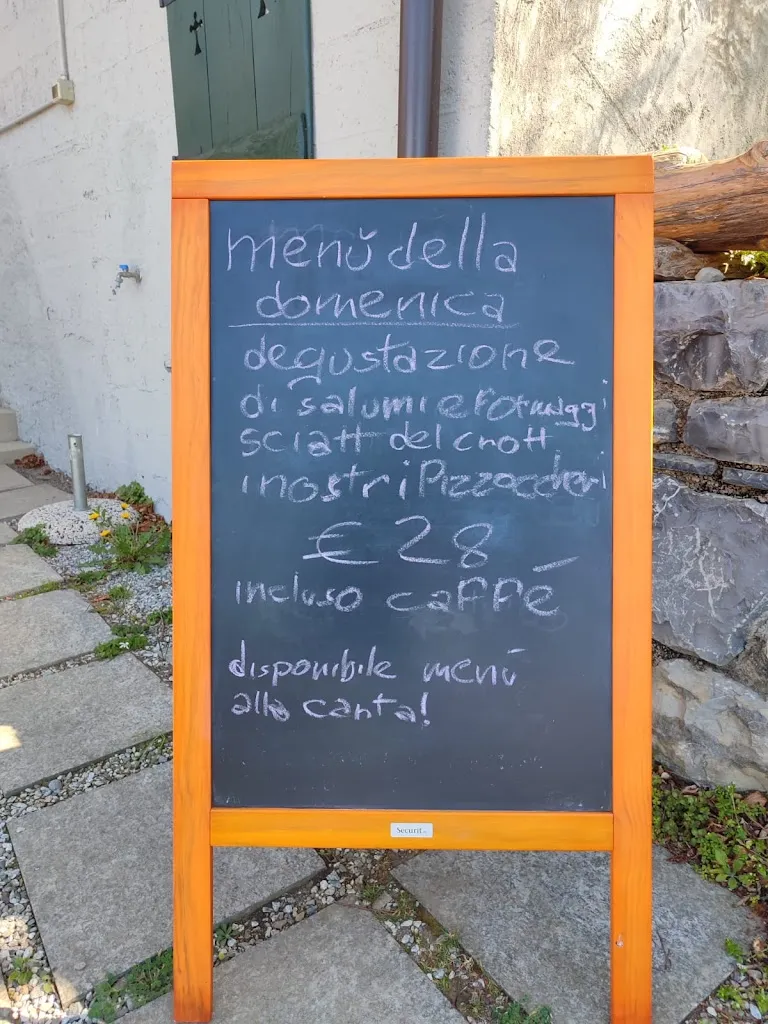 menŭ della
domenica
degustazione
di salumi e Formaggi
sciatt del crott
i nostri Pizzoccheri
€ 28
incluso caFFé
disponibile menù
alla carta!
Securit